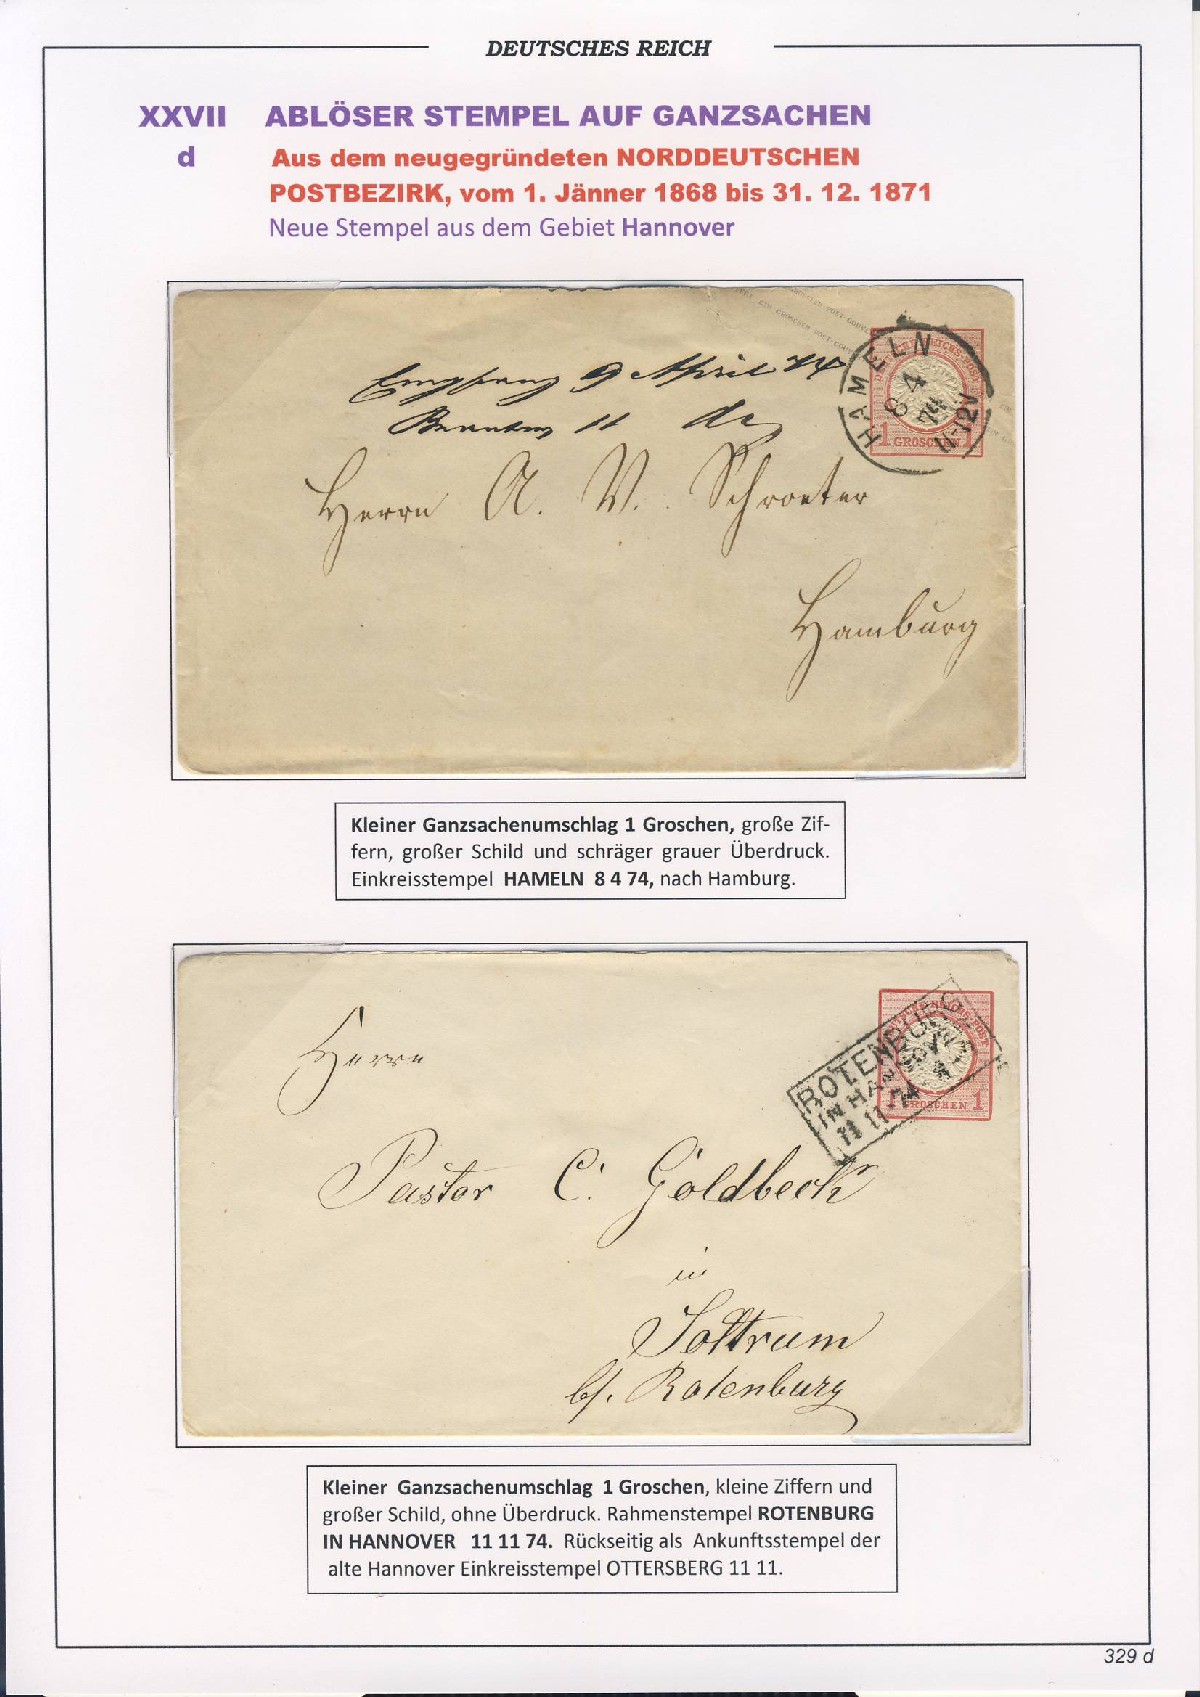 DEUTSCHES REICH
XXVII ABLÖSER STEMPEL AUF GANZSACHEN
d Aus dem neugegründeten NORDDEUTSCHEN
POSTBEZIRK, vom 1. Jänner 1868 bis 31. 12. 1871
Neue Stempel aus dem Gebiet Hannover
HAMELN
8 4
74
11-12V
1 GROSCHEN 1
Empfang 9 April 74
11
Herrn A. W. Schroeter
Hamburg
Kleiner Ganzsachenumschlag 1 Groschen, große Zif-
fern, großer Schild und schräger grauer Überdruck.
Einkreisstempel HAMELN 8 4 74, nach Hamburg.
ROTENBURG
IN HANNOVER
11 11 74
1 GROSCHEN 1
Herrn
Pastor C. Goldbeck
in
Sottrum
b/. Rotenburg
Kleiner Ganzsachenumschlag 1 Groschen, kleine Ziffern und
großer Schild, ohne Überdruck. Rahmenstempel ROTENBURG
IN HANNOVER 11 11 74. Rückseitig als Ankunftsstempel der
alte Hannover Einkreisstempel OTTERSBERG 11 11.
329 d